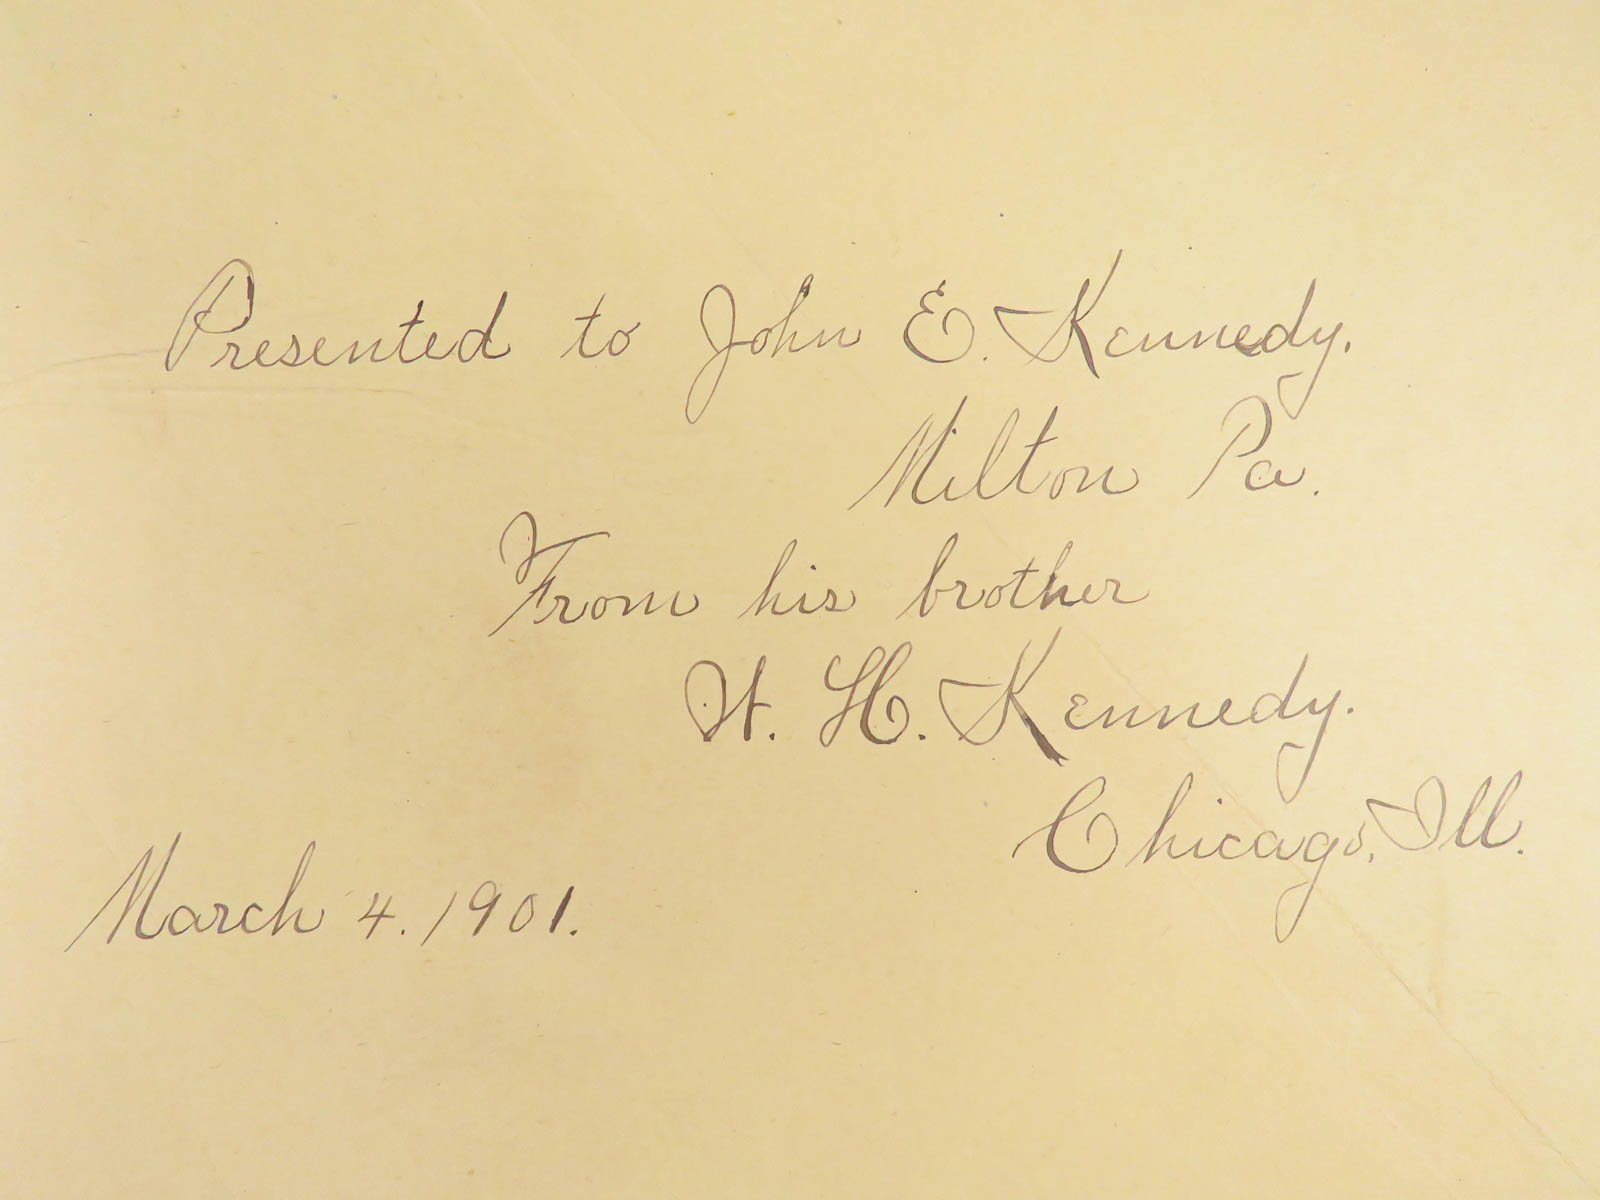 Presented to John E. Kennedy.
Milton Pa.
From his brother
W. H. Kennedy.
Chicago, Ill.
March 4. 1901.